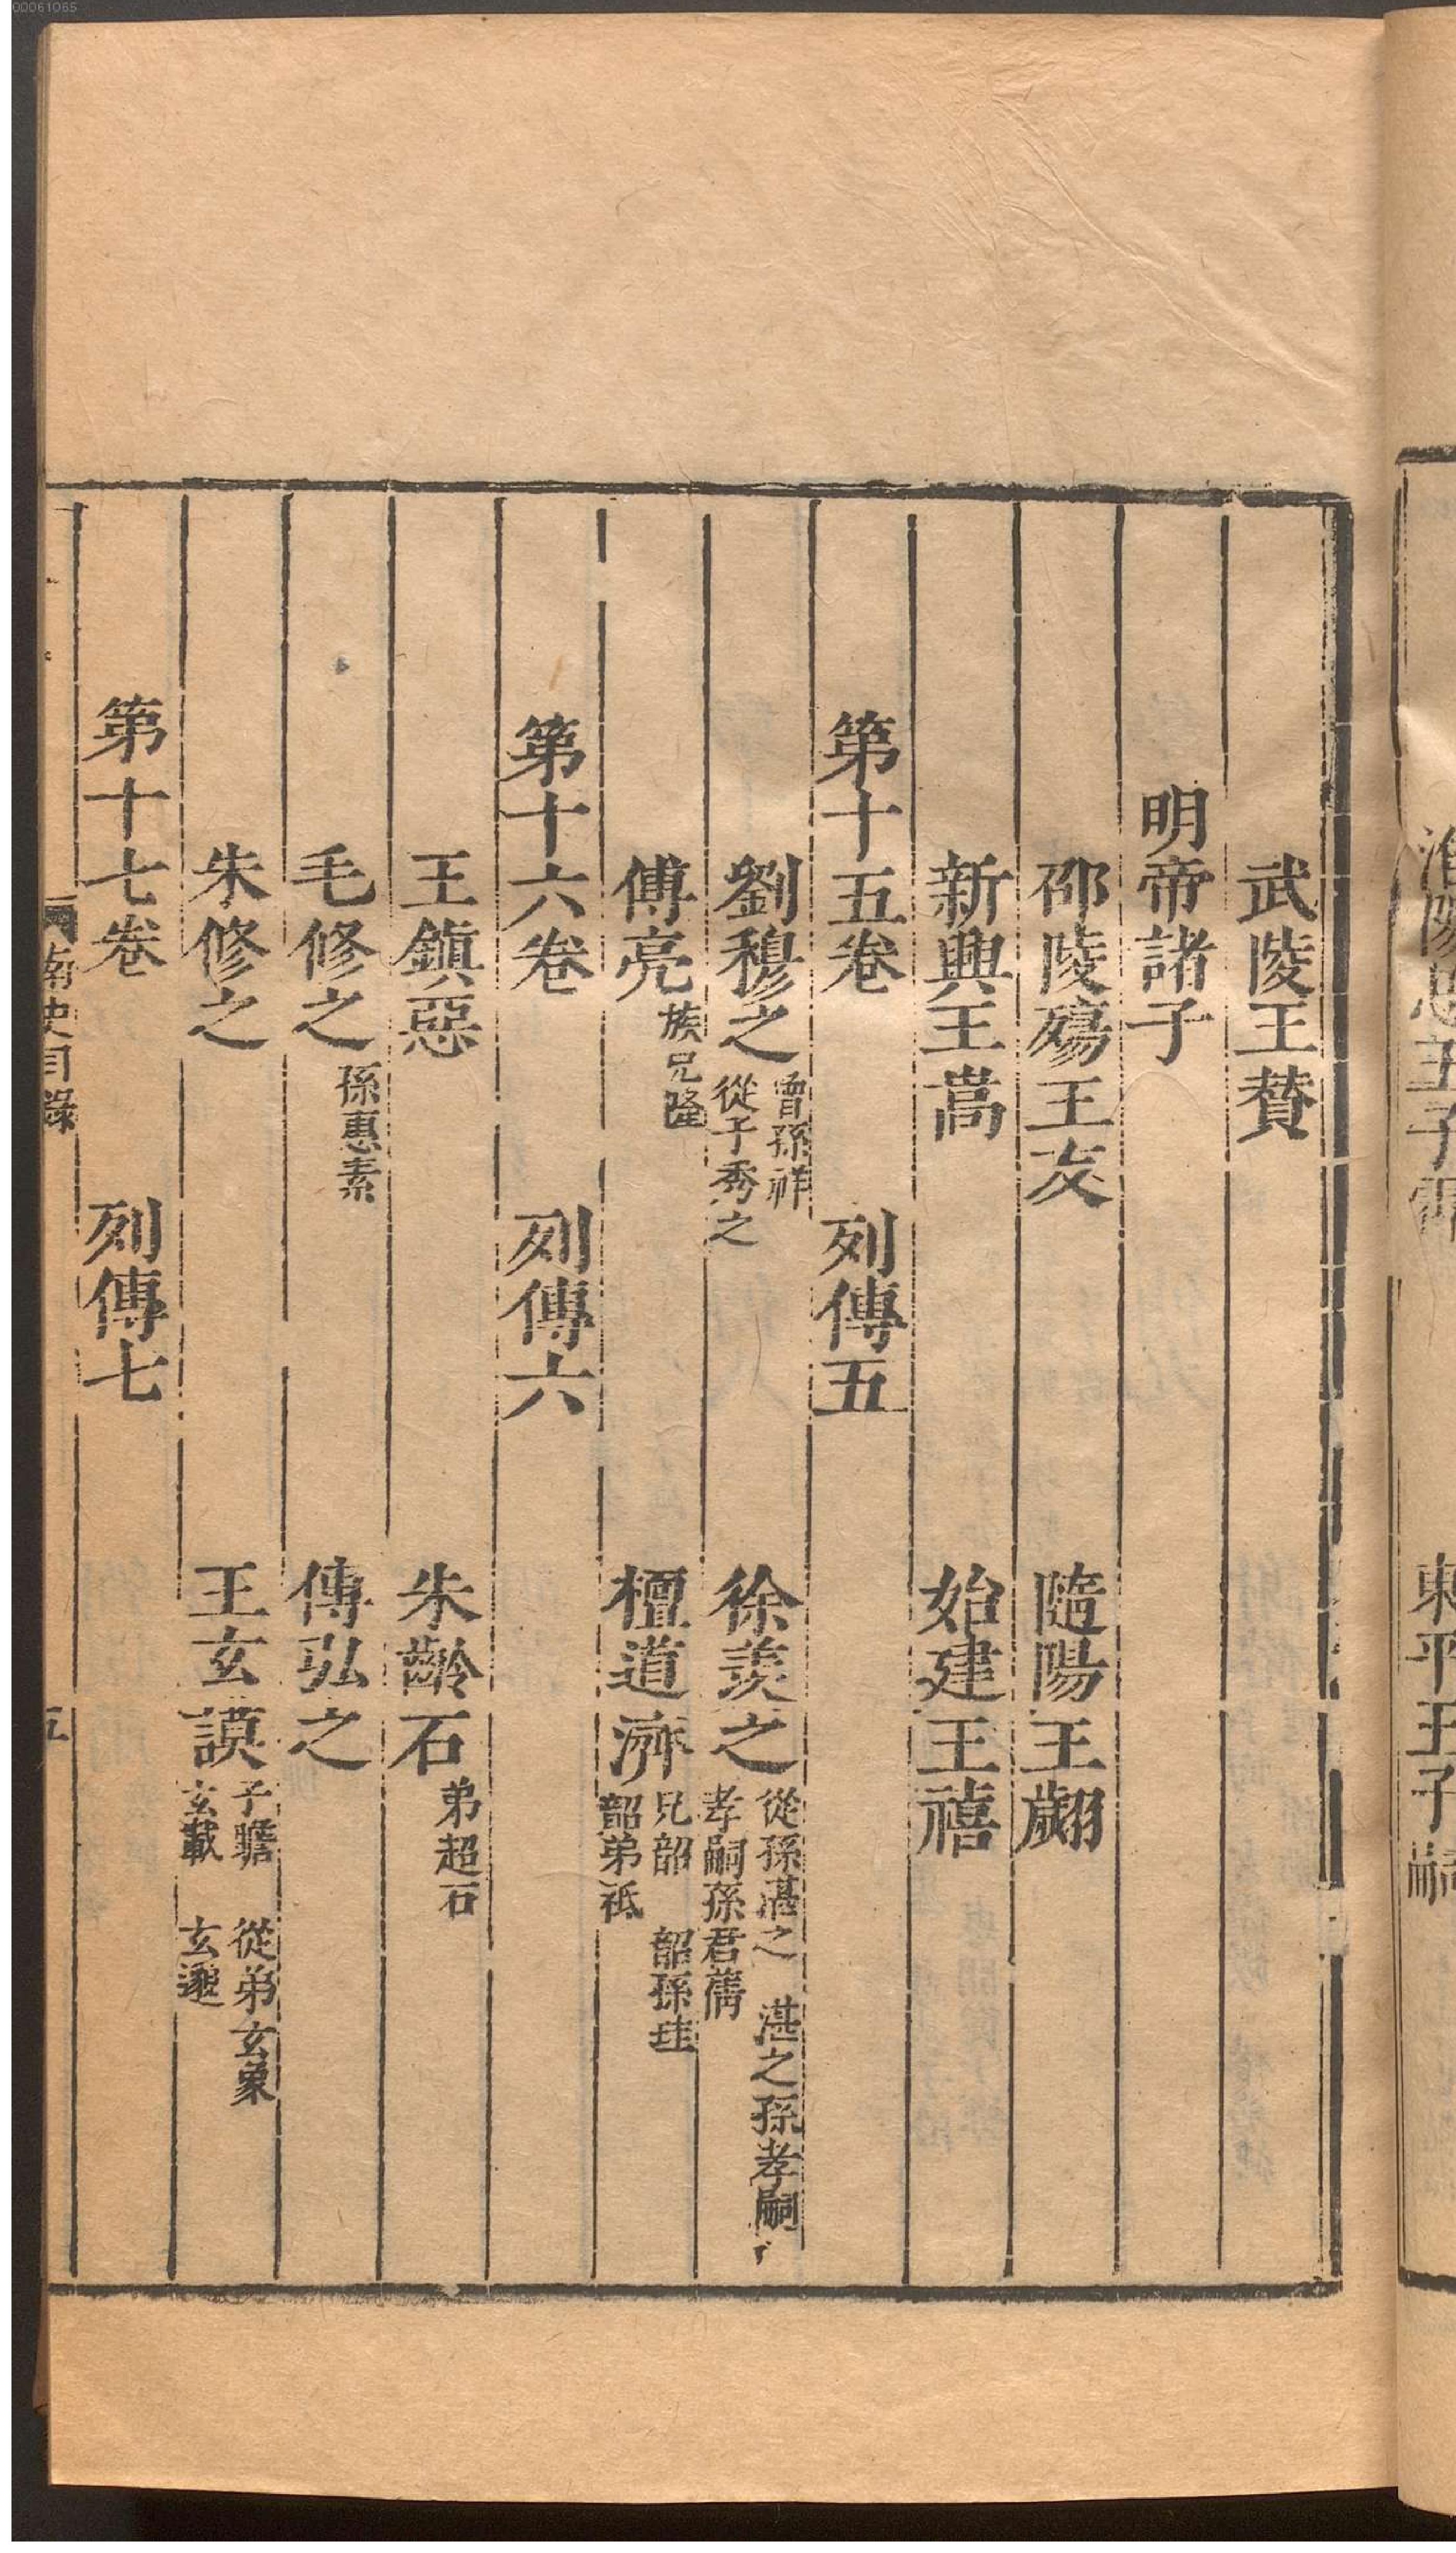 00061065
武陵王贊
明帝諸子
邵陵殤王友　隨陽王翽
新興王嵩　始建王禧
第十五卷　列傳五
劉穆之 曾孫祥 從子秀之　徐羨之 從孫湛之 湛之孫孝嗣 孝嗣孫君蒨
傅亮 族兄隆　檀道濟 兄韶 韶孫珪 韶弟祗
第十六卷　列傳六
王鎮惡　朱齡石 弟超石
毛修之 孫惠素　傅弘之
朱修之　王玄謨 子瞻 從弟玄象 玄載 玄邈
第十七卷　列傳七
南史目錄　五
東平王子嗣